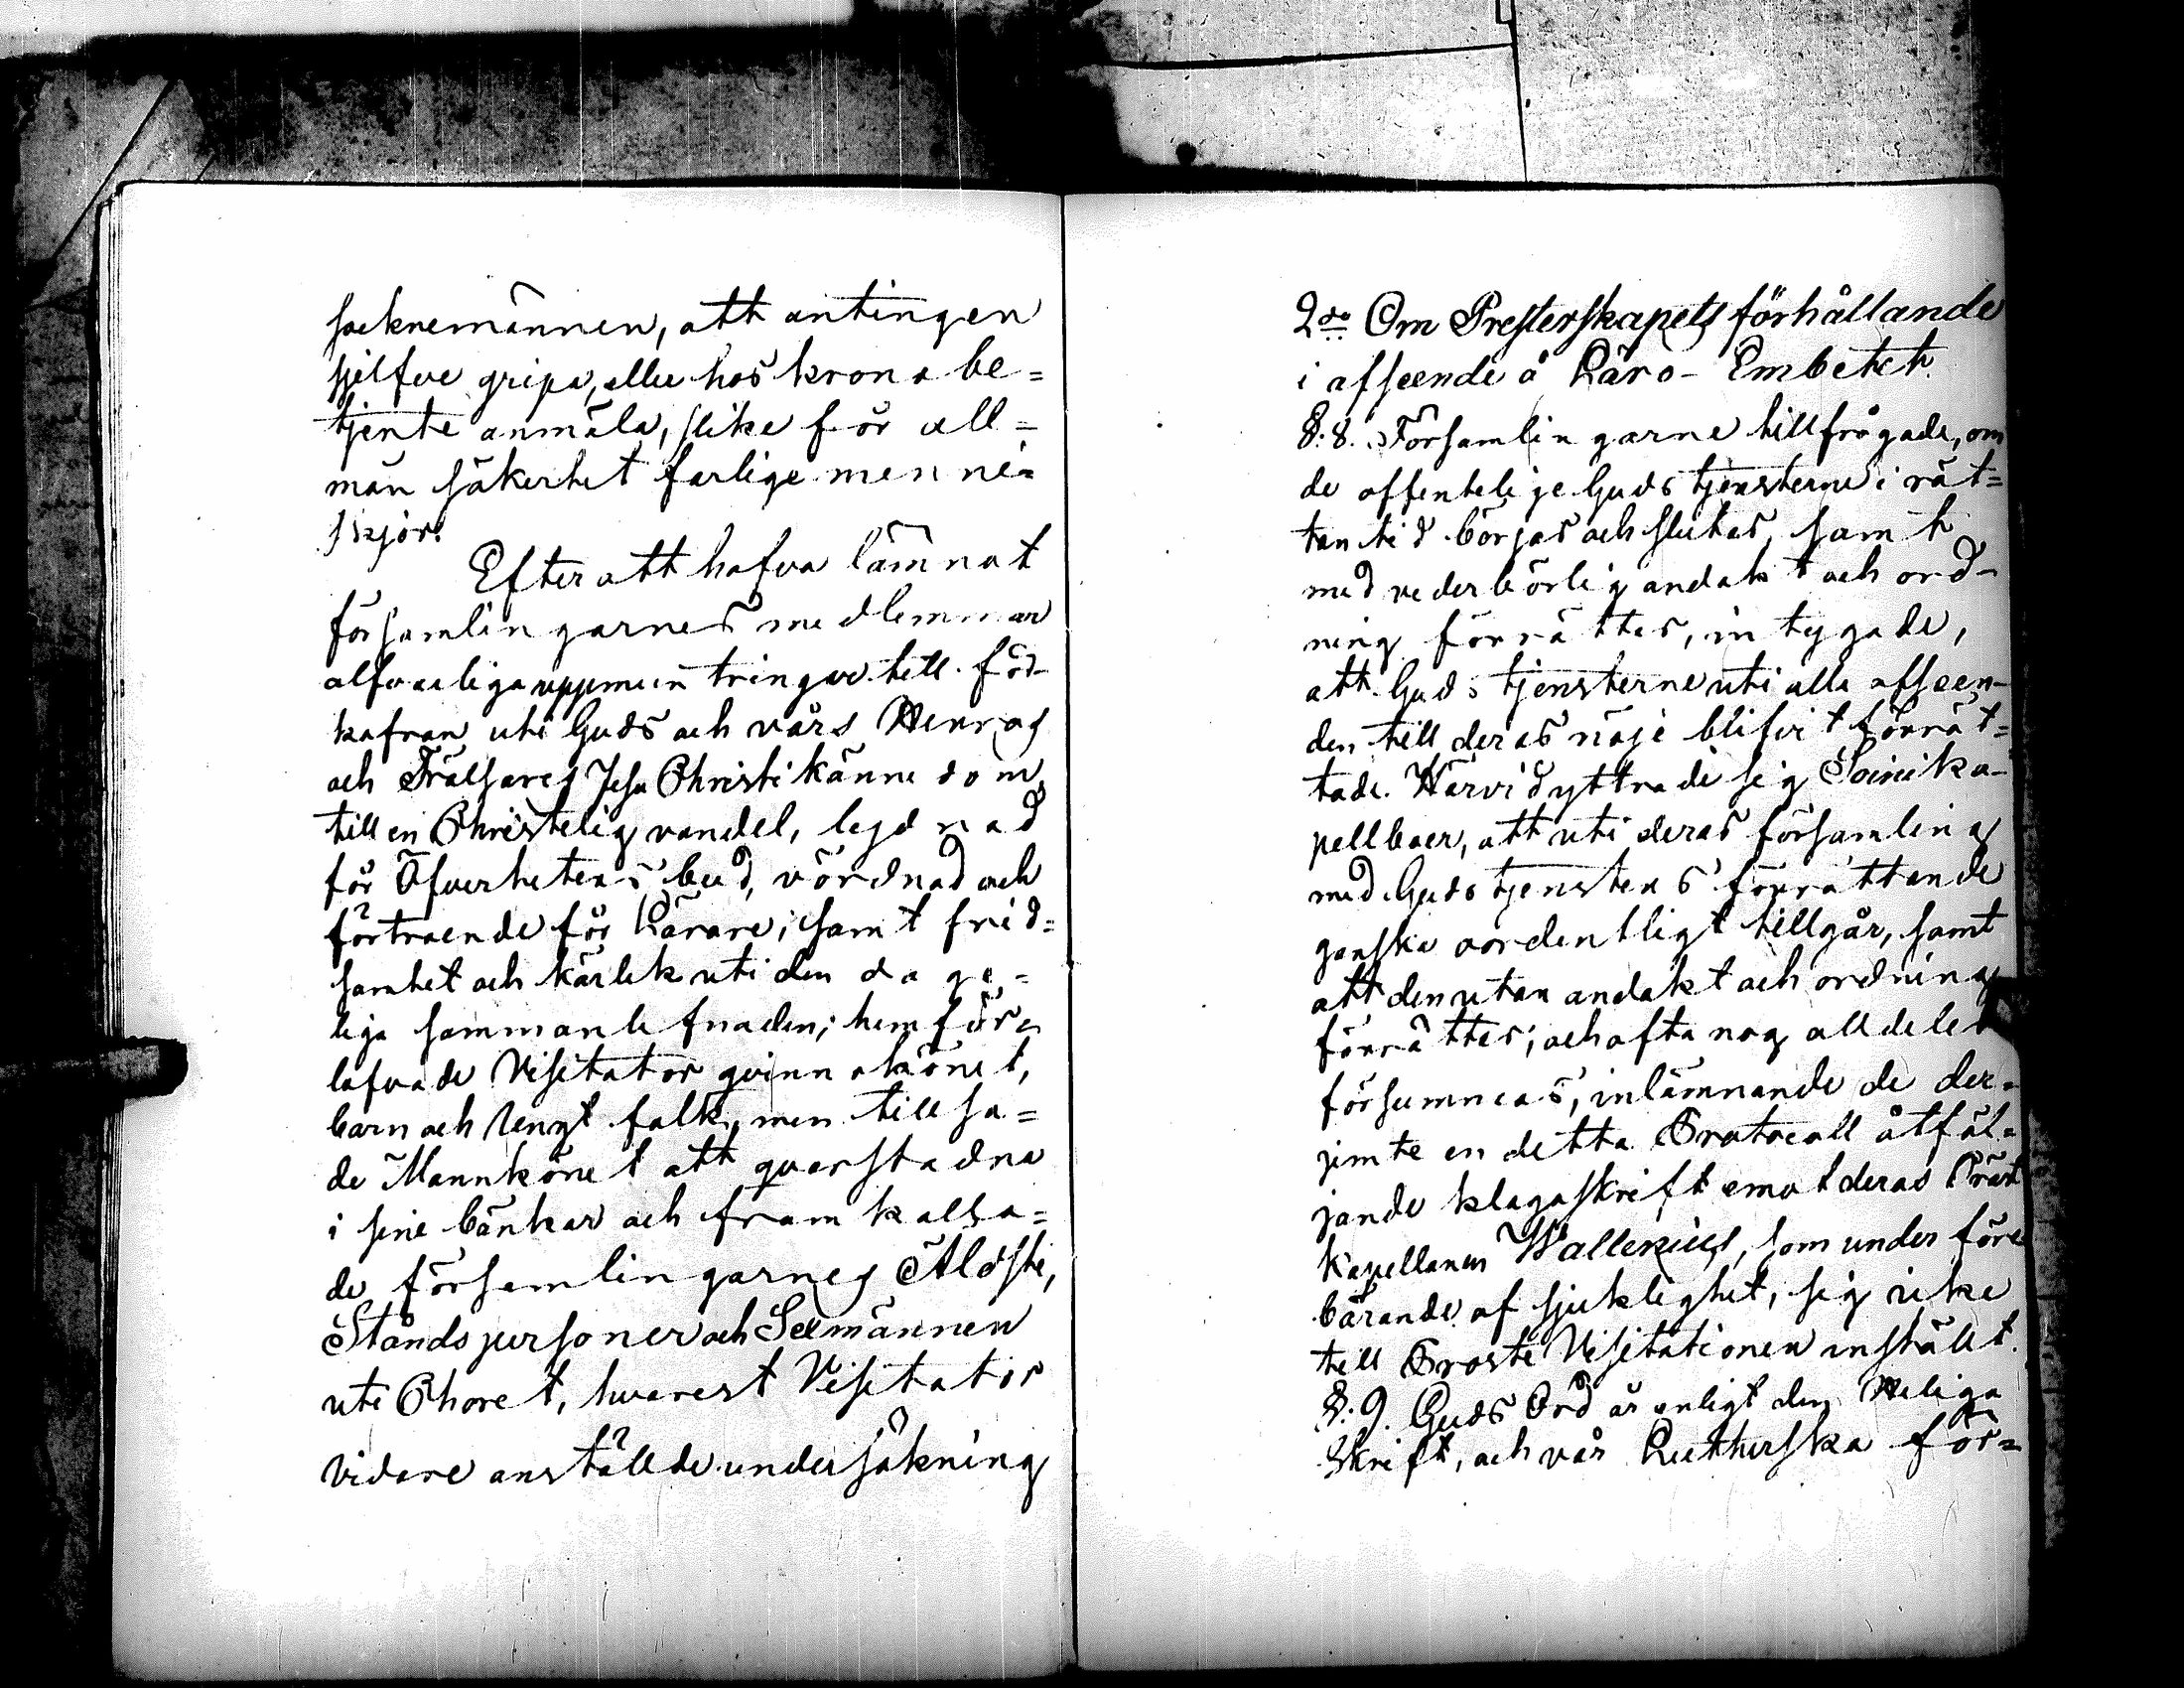 socknemännen, att antingen
sjelfve gripa, eller hos krono be=
tjente anmäla, slike för all=
män säkerhet farlige menni=
skjor.
Efter att hafva lämnat
församlingarnes medlemmar
alfvarliga uppmuntringar till för-
kofran uti Guds och vårs Herras
och Frälsares Jesu Christi kännedom
till en Christelig vandel, lydnad
för Öfverhetens bud, vördnad och
förtroende för Lärare; samt frid=
samhet och kärlek uti den dage=
liga sammanlefnaden; hemför=
lofvade Visitator qvinnokönet,
barn och ungt folk, men tillsa=
de Mannkönet att qvarstadna
i sine bänkar och framkalla=
de församlingarnes Äldste,
Ståndspersoner och Sexmännen
uti Choret, hvarest Visitator
vidare anställde undersökning
2do Om Presterskapets förhållande
i afseende å Läro-Embetet.
§. 8. Församlingarne tillfrågade, om
de offentelige Gudstjensterne i rät=
tan tid börjas och slutas, samt
med vederbörlig andakt och ord-
ning förrättes, intygade,
att Gudstjensterne uti alla afseen-
den till deras nöje blifvit förrät=
tade. Härvid yttrade sig Soini ka-
pellboer, att uti deras församling
med Gudstjenstens förrättande
ganska oordentligt tillgår, samt
att den utan andakt och ordning
förrättes; och ofta nog alldeles
försummas, inlämnande de der=
jemte en detta Protocoll åtföl=
jande klagoskrift emot deras Präst
Kapellanen Wallenius, som under före
bärande af sjuklighet, sig icke
till Proste Visitationen inställt.
§. 9. Guds Ord är enligt den Heliga
Skrift, och vår Lutherska för=